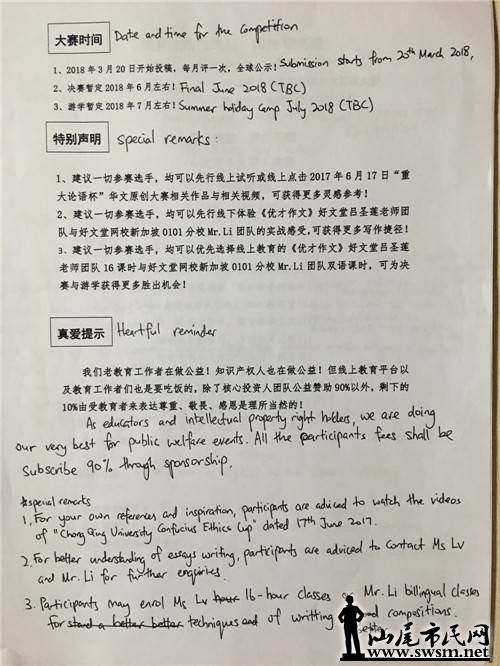 大赛时间 Date and time for the competition
1、2018年3月20日开始投稿，每月评一次，全球公示！Submission starts from 20th March 2018,
2、决赛暂定2018年6月左右！Final June 2018 (TBC)
3、游学暂定2018年7月左右！Summer holiday camp July 2018 (TBC)
特别声明 special remarks :
1、建议一切参赛选手，均可以先行线上试听或线上点击2017年6月17日“重
大论语杯”华文原创大赛相关作品与相关视频，可获得更多灵感参考！
2、建议一切参赛选手，均可以先行线下体验《优才作文》好文堂吕圣莲老师团
队与好文堂网校新加坡0101分校Mr.Li团队的实战感受，可获得更多写作捷径！
3、建议一切参赛选手，均可以优先选择线上教育的《优才作文》好文堂吕圣莲
老师团队16课时与好文堂网校新加坡0101分校Mr.Li团队双语课时，可为决
赛与游学获得更多胜出机会！
真爱提示 Heartful reminder
我们老教育工作者在做公益！知识产权人也在做公益！但线上教育平台以
及教育工作者们也是要吃饭的，除了核心投资人团队公益赞助90%以外，剩下的
10%由受教育者来表达尊重、敬畏、感恩是理所当然的！
As educators and intellectual property right holders, we are doing
our very best for public welfare events. All the participants fees shall be
subscribe 90% through sponsorship.
*special remarks
1, For your own references and inspiration, participants are adviced to watch the videos
of "Chong Qing University Confucius Ethics Cup" dated 17th June 2017.
2. For better understanding of essays writing, participants are adviced to contact Ms Lv
and Mr. Li for further enquiries.
3. Participants may enrol Ms Lv hour 16-hour classes Mr. Li bilingual classes
for stand a better better techniques and of writting compositions.
better
汕尾市民网
www.swsm.net